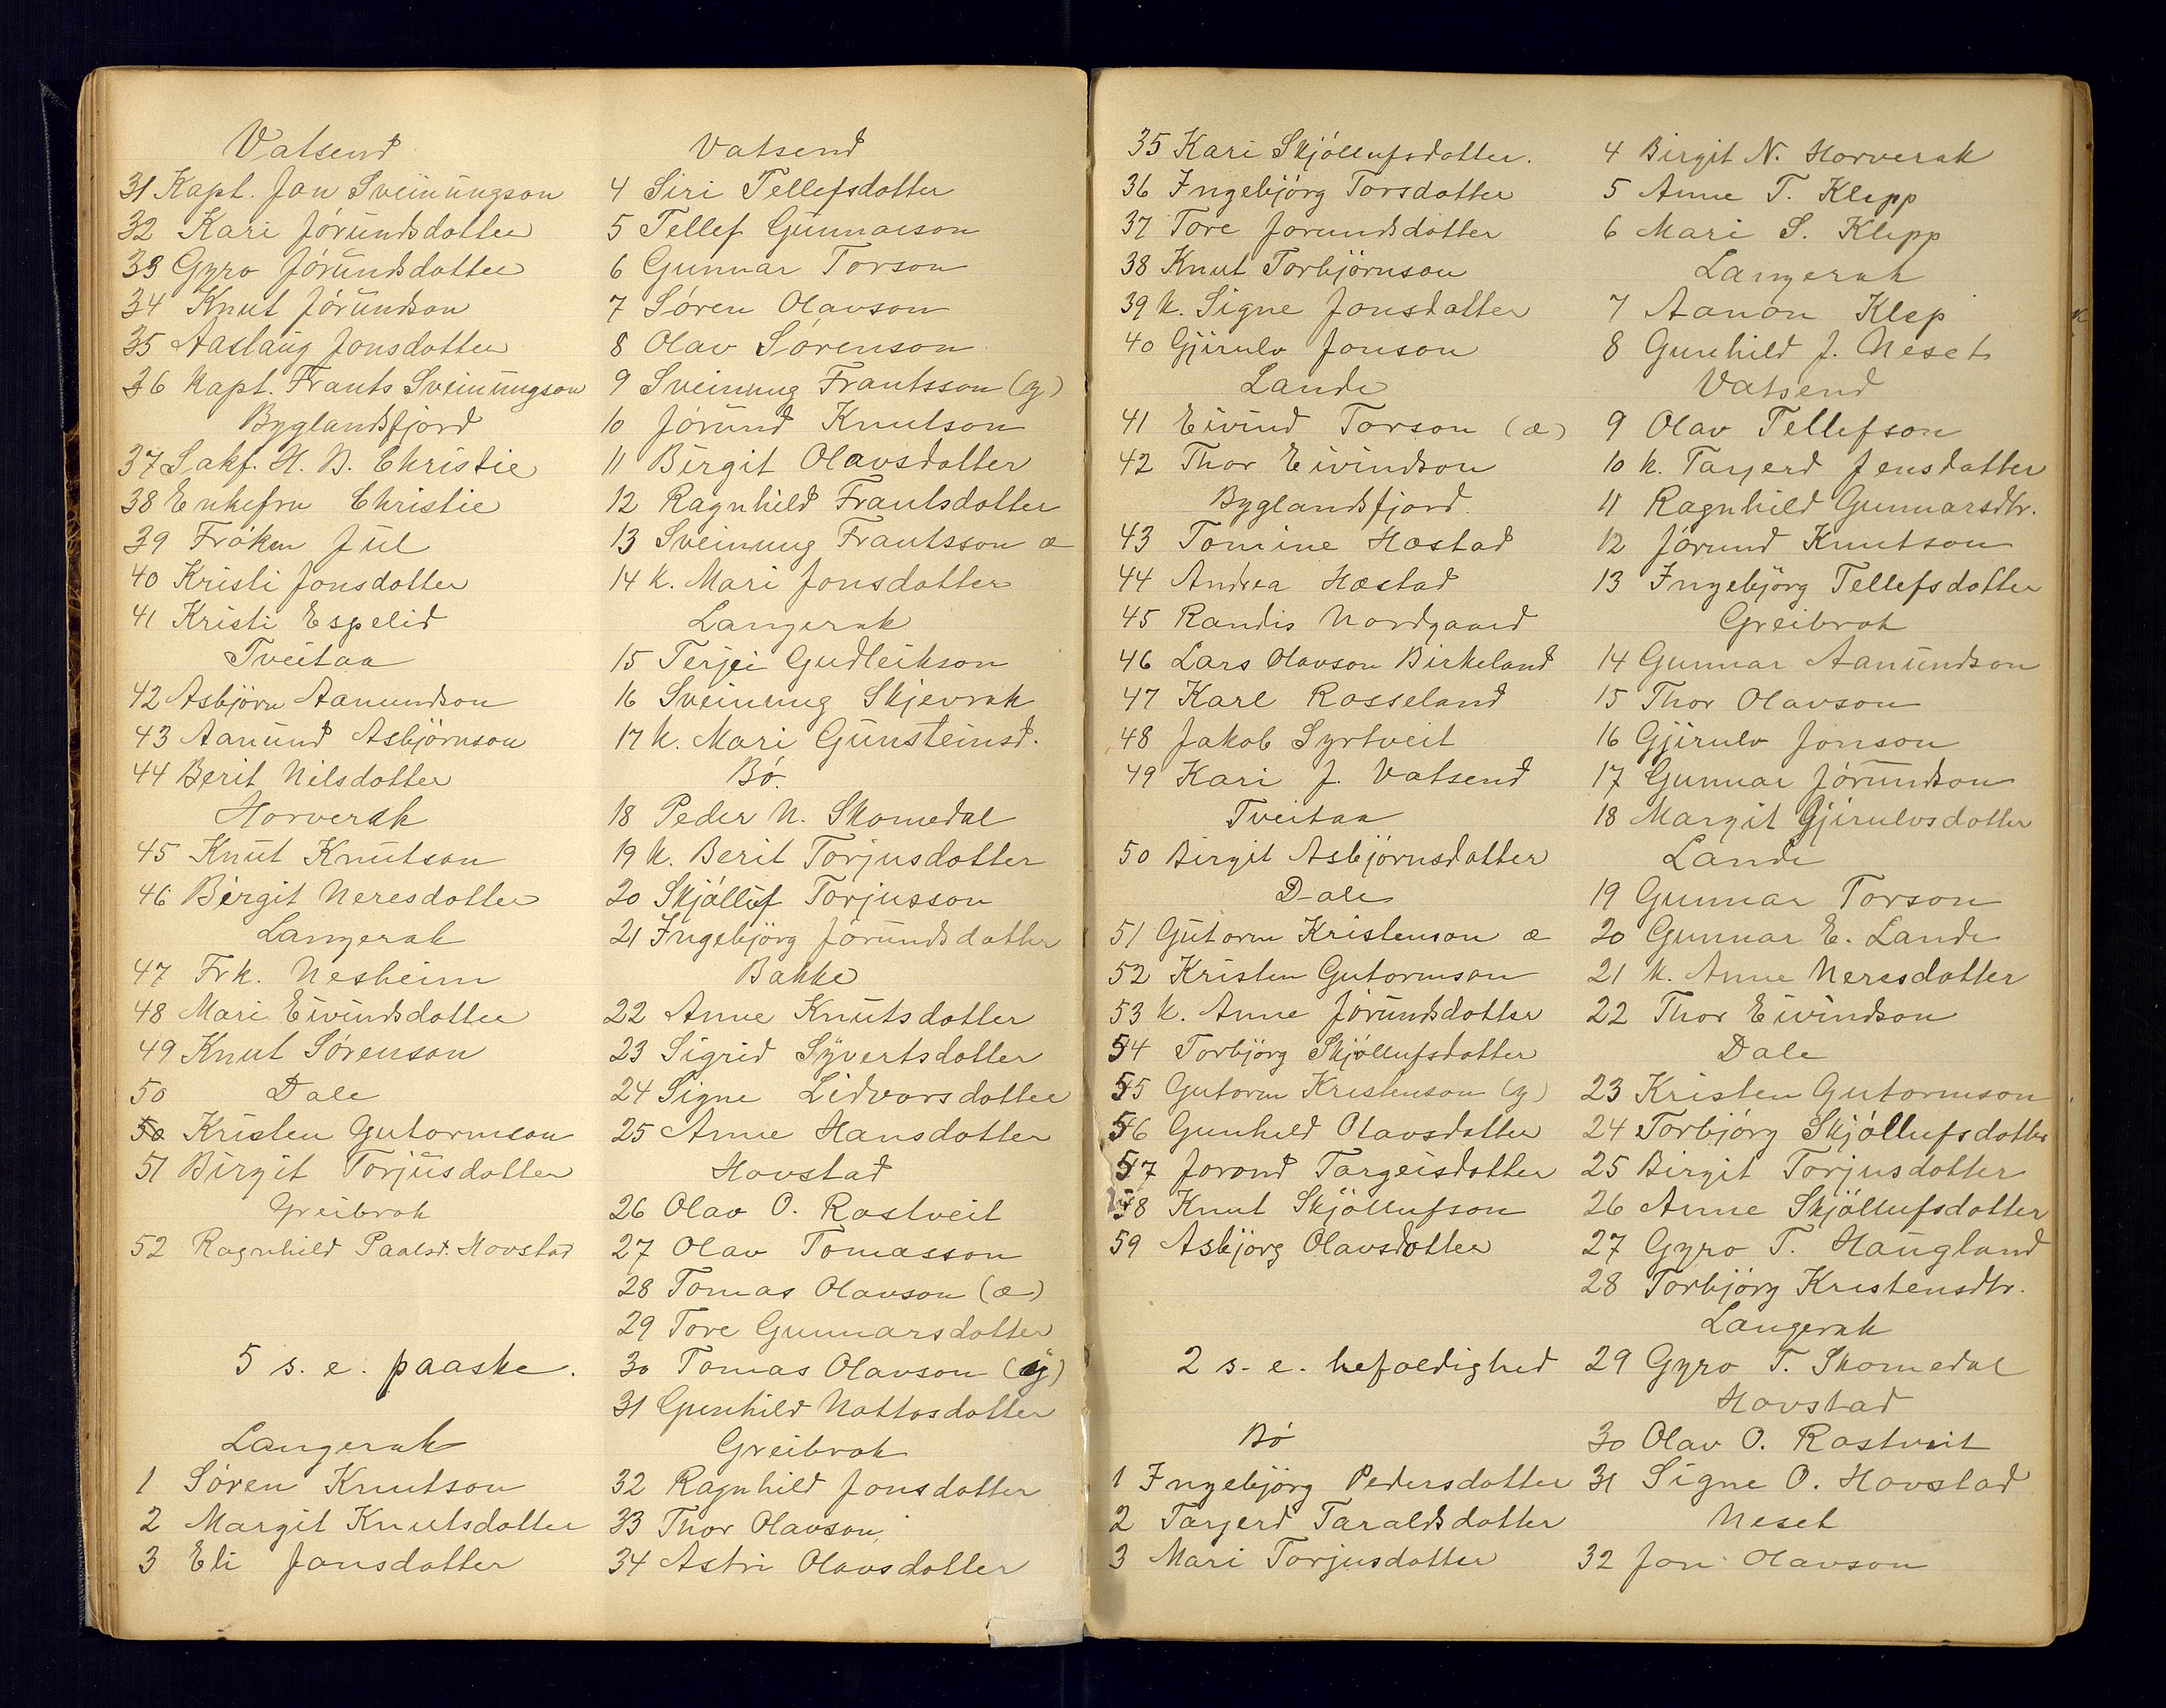 Vatsend
31 Kapt. Jon Sveinungson
32 Kari Jórundsdotter
33 Gyro Jórundsdotter
34 Knut Jórundson
35 Aaslaug Jonsdotter
36 Kapt. Frants Sveinungson
Byglandsfjord
37 Sakf. H. B. Christie
38 Enkefru Christie
39 Fróken Jul
40 Kristi Jonsdotter
41 Kristi Espelid
Tveitaa
42 Asbjörn Aamundson
43 Aanund Asbjörnson
44 Berit Nilsdotter
Horverak
45 Knut Knutson
46 Birgit Neresdotter
Langerak
47 Frk. Nesheim
48 Mari Eivindsdotter
49 Knut Sörenson
50 Dale
50 Kristen Gutormson
51 Birgit Torjusdotter
Greibrok
52 Ragnhild Paalsd. Hovstad
5 s. e. paaske.
Langerak
1 Sóren Knutson
2 Margit Knutsdotter
3 Eli Jonsdotter
Vatsend
4 Siri Tellefsdotter
5 Tellef Gunnarson
6 Gunnar Torson
7 Sóren Olavson
8 Olav Sórenson
9 Sveinung Frantsson (y)
10 Jórund Knutson
11 Birgit Olavsdotter
12 Ragnhild Frantsdotter
13 Sveinung Frantsson æ
14 k. Mari Jonsdotter
Langerak
15 Terjei Gudleikson
16 Sveinung Skjevrak
17 k. Mari Gunsteinsd.
Bó.
18 Peder N. Skomedal
19 k. Berit Torjusdotter
20 Skjólluf Torjusson
21 Ingebjörg Jórundsdotter
Bakke
22 Anne Knutsdotter
23 Sigrid Syvertsdotter
24 Signe Lidvorsdotter
25 Anne Hansdotter
Hovstad
26 Olav O. Rostveit
27 Olav Tomasson
28 Tomas Olavson (æ)
29 Tore Gunnarsdotter
30 Tomas Olavson (y)
31 Gunhild Nottosdotter
Greibrok
32 Ragnhild Jonsdotter
33 Thor Olavson
34 Astri Olavsdotter
35 Kari Skjóllufsdotter.
36 Ingebjörg Torsdotter
37 Tore Jorundsdotter
38 Knut Torbjörnson
39 k. Signe Jonsdotter
40 Gjirulv Jonson
Lande
41 Eivind Torson (æ)
42 Thor Eivindson
Byglandsfjord.
43 Tomine Hæstad
44 Andrea Hæstad
45 Randis Nordgaard
46 Lars Olavson Birkeland
47 Karl Rosseland
48 Jakob Syrtveit
49 Kari J. Vatsend
Tveitaa
50 Birgit Asbjörnsdotter
Dale
51 Gutorm Kristenson æ
52 Kristen Gutormson
53 k. Anne Jórundsdotter
54 Torbjörg Skjöllufsdotter
55 Gutorm Kristenson (y)
56 Gunhild Olavsdotter
57 Jorond Targeisdotter
58 Knut Skjöllufson
59 Asbjörg Olavsdotter
2 s. e. hefoldighed
Bó
1 Ingebjörg Pedersdotter
2 Tarjerd Taraldsdotter
3 Mari Torjusdotter
4 Birgit N. Horverak
5 Anne T. Klepp
6 Mari S. Klepp
Langerak
7 Aanon Klep
8 Gunhild J. Neset
Vatsend
9 Olav Tellefson
10 k. Tarjerd Jensdatter
11 Ragnhild Gunnarsdtr.
12 Jórund Knutson
13 Ingebjörg Tellefsdotter
Greibrok
14 Gunnar Aanundson
15 Thor Olavson
16 Gjirulv Jonson
17 Gunnar Jórundson
18 Margit Gjirulvsdotter
Lande
19 Gunnar Torson
20 Gunnar E. Lande
21 k. Anne Neresdotter
22 Thor Eivindson
Dale
23 Kristen Gutormson
24 Torbjörg Skjóllufsdotter
25 Birgit Torjusdotter
26 Anne Skjöllufsdotter
27 Gyro T. Haugland
28 Torbjörg Kristensdtr.
Langerak
29 Gyro T. Skomedal
Hovstad
30 Olav O. Rostveit
31 Signe O. Hovstad
Neset
32 Jon Olavson